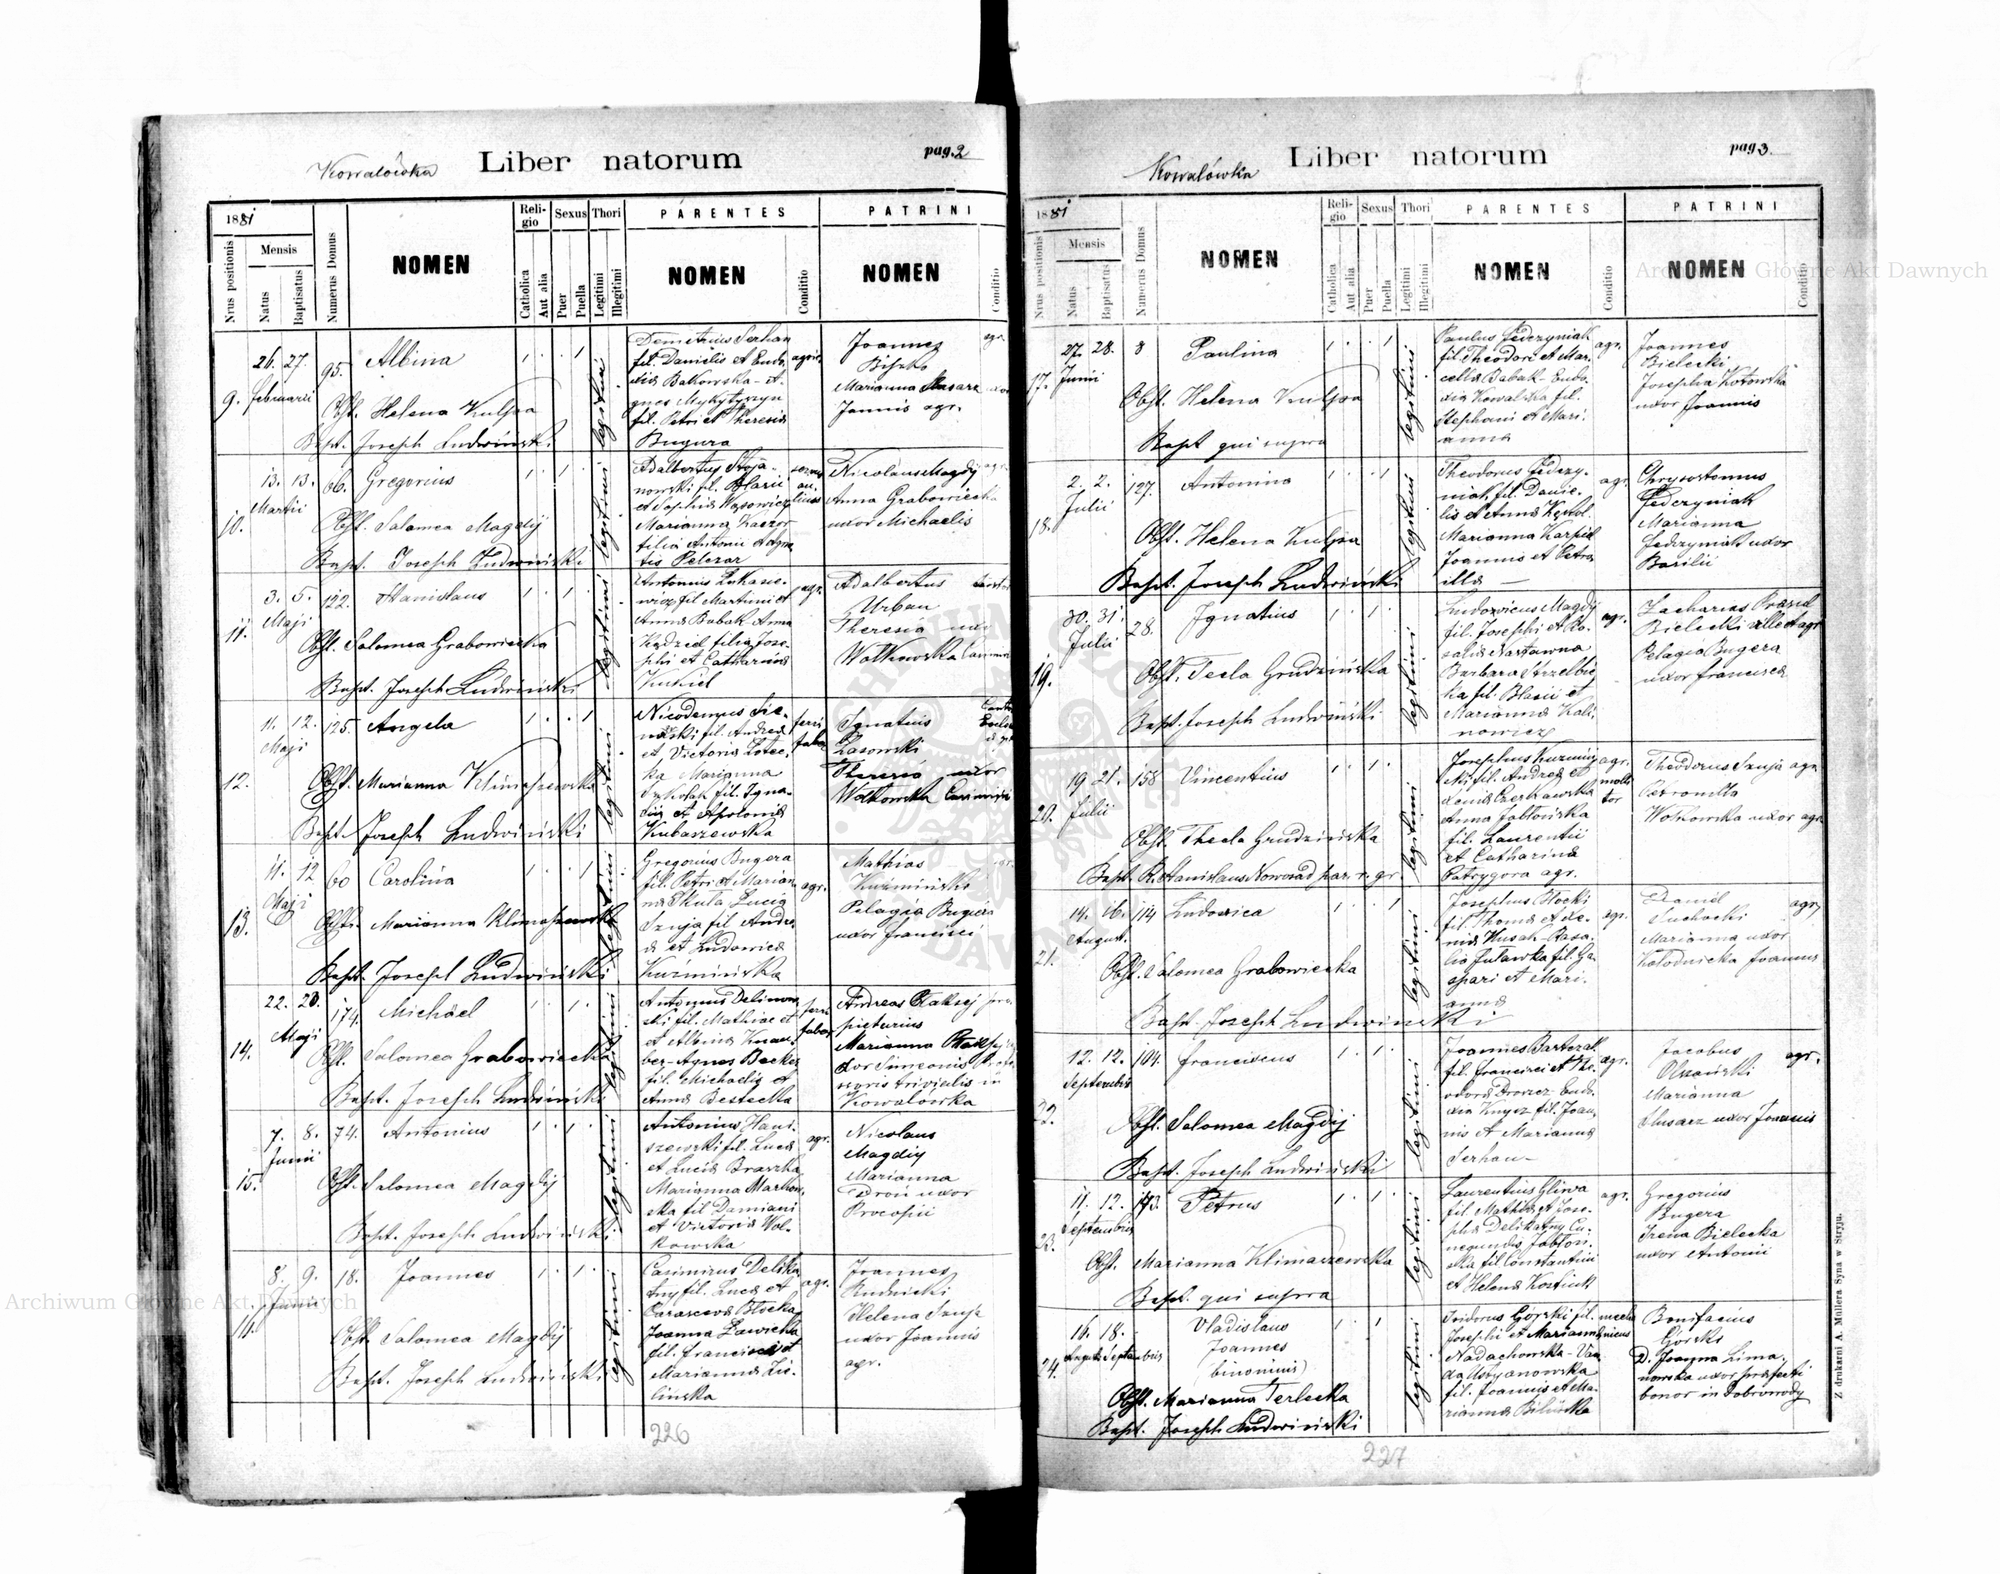 Kowalówka Liber natorum pag. 2
1881
Nrus positionis
Mensis
Natus
Baptisatus
Numerus Domus
NOMEN
Reli-
gio
Catholica
Aut alia
Sexus
Puer
Puella
Thori
Legitimi
Illegitimi
PARENTES
NOMEN
Conditio
PATRINI
NOMEN
Conditio
9. 26. 27. Februarii 95. Albina
Obst. Helena Kulpa
Bapt. Joseph Ludwiński
legitimi
Demetrius Serhan
fil. Danielis et Eudo-
xia Bakowska - A-
gnes Mykytyszyn
fil. Petri et Theresia
Bugera
Joannes
Marianna
Joannis agr.
10. 13. 13. Martii 66. Gregorius
Obst. Salomea Magdij
Bapt. Joseph Ludwiński
legitimi
Adalbertus Stoja-
nowski fil. Blasii
et Sophia Wąsowicz
Marianna Kaczor
filia Antonii et Agne-
tis Pelczar
Nicolaus Magdij
Anna Grabowiecka
uxor Michaelis
11. 3. 5. Maji 122. Stanislaus
Obst. Salomea Grabowiecka
Bapt. Joseph Ludwiński
legitimi
Antonius Lukasie-
wicz fil. Martini et
Anna Babak - Anna
Kądziel filia Jose-
phi et Catharina
agr.
Adalbertus
Urban
Theresia uxor
Wolkowska
12. 11. 12. Maji 125. Angela
Obst. Marianna Klimaszewska
Bapt. Joseph Ludwiński
legitimi
fil. Andrea
et Victoria
Marianna
fil. Igna-
tii et Apolonia
Kubaszewska
ferri
faber
Ignatius
Lasowski
Theresia uxor
Wolkowska Casimiri
13. 11. 12 Maji 60 Carolina
Obst. Marianna Klimaszewska
Bapt. Joseph Ludwiński
legitimi
Gregorius Bugera
fil. Petri et Marian-
na Skuta Lucia
Szuja fil. Andre-
a et Ludovica
Kuźmińska
agr.
Mathias
Kuźmiński
Pelagia Bugera
uxor Francisci
14. 22. 23. Maji 174. Michael
Obst. Salomea Grabowiecka
Bapt. Joseph Ludwiński
legitimi
Antonius Delimow-
ski fil. Mathiae et
et Albina Knau-
ber - Agnes Becker
fil. Michaelis et
Anna Bestecka
ferri
faber
Andreas Ptaksej
Marianna Ptaksej
uxor Simeonis
trivialis in
Kowalówka
15. 7. 8. Junii 74. Antonius
Obst. Salomea Magdij
Bapt. Joseph Ludwiński
legitimi
Antonius Hani-
szewski fil. Luca
et Lucia Braszka
Marianna Markow-
ska fil. Damiani
et Victoria Wol-
kowska
agr.
Nicolaus
Magdij
Marianna
Droń uxor
Procopii
16. 8. 9. Junii 18. Joannes
Obst. Salomea Magdij
Bapt. Joseph Ludwiński
legitimi
Casimirus Delika-
tny fil. Luca et
Parasceva Błocka
Joanna Ławicka
fil. Francisci et
Marianna Zie-
lińska
agr.
Joannes
Rudnicki
Helena Szuja
uxor Joannis
agr.
226
Kowalówka Liber natorum pag. 3.
1881
Nrus positionis
Mensis
Natus
Baptisatus
Numerus Domus
NOMEN
Reli-
gio
Catholica
Aut alia
Sexus
Puer
Puella
Thori
Legitimi
Illegitimi
PARENTES
NOMEN
Conditio
PATRINI
NOMEN
Conditio
17. 27. 28. Junii 8 Paulina
Obst. Helena Kulpa
Bapt. qui supra
legitimi
Paulus Fedczyniak
fil. Theodori et Mar-
cella Babak - Eudo-
xia Kowalska fil.
Stephani et Mari-
anna
agr.
Joannes
Bielecki
Josepha Kotowska
uxor Joannis
18. 2. 2. Julii 127. Antonina
Obst. Helena Kulpa
Bapt. Joseph Ludwiński
legitimi
Theodorus Fedczy-
niak fil. Danie-
lis et Anna
Marianna Karpiel
Joannis et Petro-
nilla —
agr.
Chrysostomus
Fedczyniak
Marianna
Fedczyniak uxor
Basilii
19. 30. 31. Julii 28. Ignatius
Obst. Tecla Grudzińska
Bapt. Joseph Ludwiński
legitimi
Ludovicus Magdij
fil. Josephi et Ro-
salia Nartowna
Barbara Strzelbic-
ka fil. Blasii et
Marianna Kali-
nowicz
agr.
Zacharias
Bielecki
Pelagia Bugera
uxor Francisci
20. 19 21. Julii 158 Vincentius
Obst. Thecla Grudzińska
Bapt. R. Stanislaus Nowosad par. r. gr.
legitimi
Josephus Kuźmiń-
ski fil. Andrea et
Xenia Czerkawska
Anna Jabłońska
fil. Laurentii
et Catharina
Patrygora agr.
agr.
moli-
tor
Theodorus Szuja agr.
Petronella
Wolkowska uxor agr.
21. 14. 16. August. 114 Ludovica
Obst. Salomea Grabowiecka
Bapt. Joseph Ludwiński
legitimi
Josephus Błocki
fil. Thoma et Xe-
nia Husak - Rosa-
lia Jutawka fil. Ga-
spari et Mari-
anna
agr.
Daniel
Suchocki
Marianna uxor
Kołodnicka Joannis
agr.
22. 12. 12. Septembris 104. Franciscus
Obst. Salomea Magdij
Bapt. Joseph Ludwiński
legitimi
Joannes Bartczak
fil. Francisci et The-
odora Drozcz Eudo-
xia Knysz fil. Joan-
nis et Marianna
Serhan -
agr.
Jacobus
Olszański
Marianna
Slusarz uxor Joannis
agr.
23. 11. 12. Septembris 173. Petrus
Obst. Marianna Klimaszewska
Bapt. qui supra
legitimi
Laurentius Gliwa
fil. Mathia et Jose-
pha Delikatny Cu-
negundis Jabłoń-
ska fil. Constantini
et Helena Kostiuk
agr.
Gregorius
Bugera
Irena Bielecka
uxor Antonii
24. 16. 18. Augusti Septembris Vladislaus
Joannes
(binominis)
Obst. Marianna Terlecka
Bapt. Joseph Ludwiński
legitimi
Isidorus Górski fil.
Josephi et Marianna
Nadachowska - Van-
da Ustyanowska
fil. Joannis et Ma-
rianna Bilińska
mecha-
nicus
Bonifacius
Górski
D. Joanna Lima-
nowska uxor praefecti
bonor. in Dobrowody
227
Z drukarni A. Müllera Syna w Stryju.
Archiwum Główne Akt Dawnych
Archiwum Główne Akt Dawnych